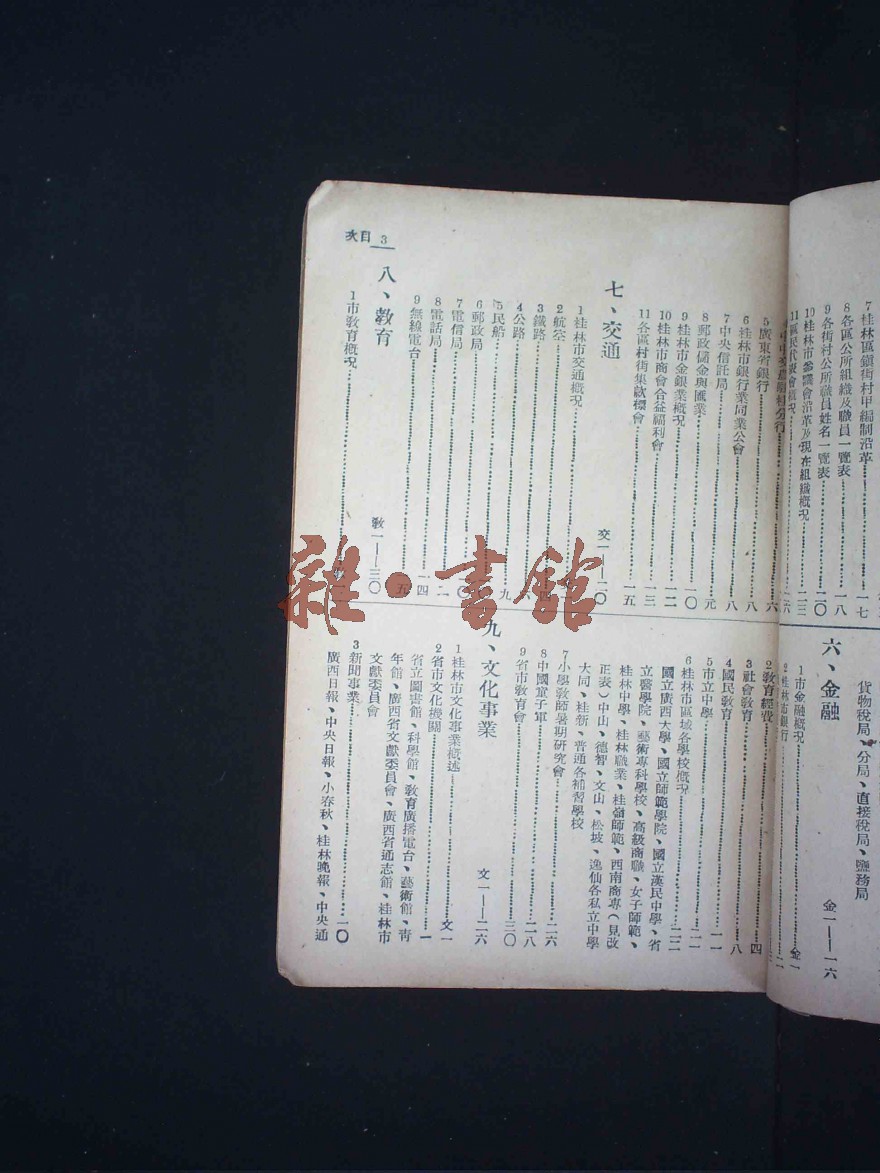 7桂林區鎮街村甲編制沿革……一七
8各區公所組織及職員一覽表……一八
9各街村公所職員姓名一覽表……二〇
10桂林市參議會沿革及現在組織概况……二三
11區民代表會概况……二六
貨物稅局、分局、直接稅局、鹽務局
六、金融
金一——一六
1市金融概况……金一
2桂林市銀行……二
5廣東省銀行……六
6桂林市銀行業同業公會……八
7中央信託局……八
8郵政儲金與匯業……元
9桂林市金銀業概况……一〇
10桂林市商會合益福利會……一二
11各區村街集款標會……一三
一五
七、交通
交一——二〇
1桂林市交通概况
2航空
3鐵路……四
4公路
5民船……九
6郵政局
7電信局……〇
8電話局……二
9無線電台……一四
五
八、教育
教一——三〇
1市教育概况
次目 3
2教育經費
3社會教育……四
4國民教育……八
5市立中學……一一
6桂林市區域各學校概况……二一
二二
國立廣西大學、國立師範學院、國立漢民中學、省
立醫學院、藝術專科學校、高級商職、女子師範、
桂林中學、桂林職業、桂嶺師範、西南商專(見改
正表)中山、德智、文山、松坡、逸仙各私立中學
大同、桂新、普通各補習學校
7小學教師暑期研究會……二六
8中國童子軍……二八
9省市教育會……三〇
九、文化事業
文一——二六
1桂林市文化事業概述……文一
2省市文化機關……一
省立圖書館、科學館、教育廣播電台、藝術館、青
年館、廣西省文獻委員會、廣西省通志館、桂林市
文獻委員會
3新聞事業……一〇
廣西日報、中央日報、小春秋、桂林晚報、中央通
雜·書館